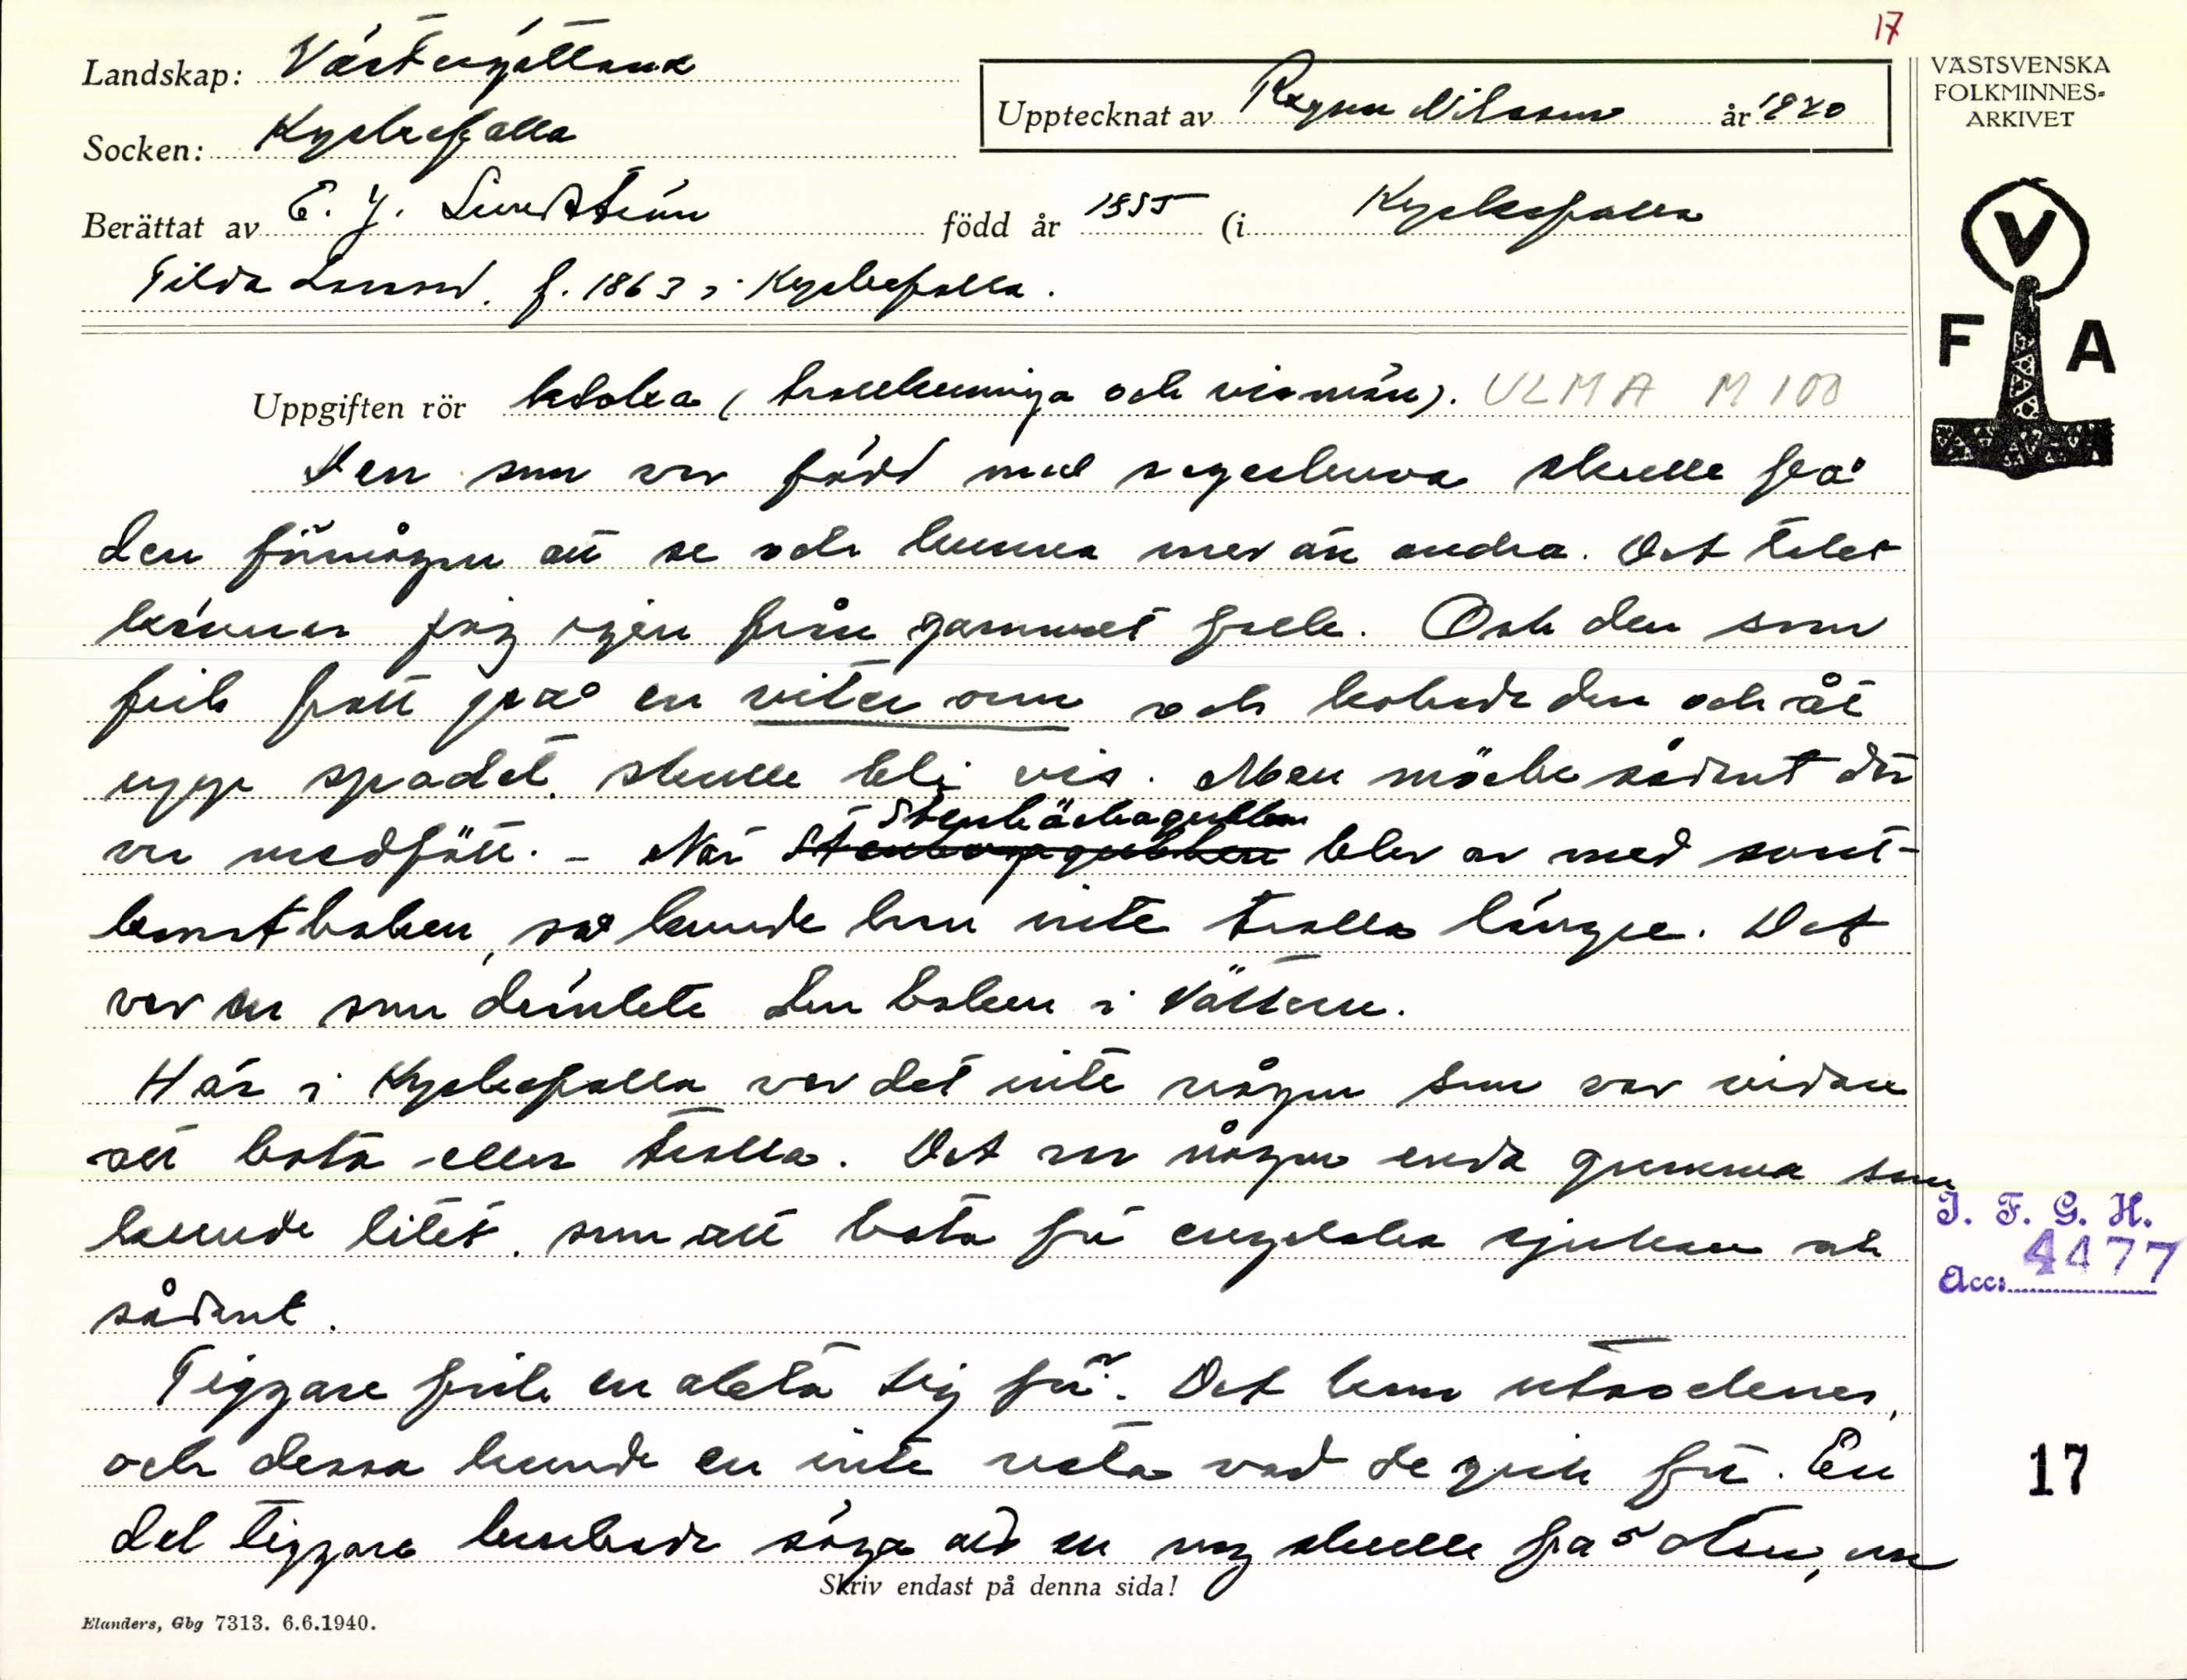 17
Landskap: Västergötland
Socken: Kyrkefalla
Upptecknat av Ragnar Nilsson år 1940
VÄSTSVENSKA
FOLKMINNES-
ARKIVET
Berättat av E. J. född år 1855 (i Kyrkefalla
Tilda f. 1863 i Kyrkefalla.
V
F A
Uppgiften rör kloka (trollkunniga och vismän). ULMA M 100
Den som var född med segerhuva skulle få
den förmågan att se och kunna mer än andra. Det talet
känner jag igen från gammalt folk. Och den som
fick fatt på en viter orm och kokade den och åt
upp spadet, skulle bli vis. Men möcke sådant där
var medfött. – När Stenbäckagubben blev av med svart-
konstboken, så kunde han inte trolla längre. Det
var en som dränkte den boken i Vättern.
Här i Kyrkefalla var det inte någon som var vidare
att bota eller trolla. Det var någon enda gumma som
kunde litet, som att bota för engelska sjukan och
sådant.
Tiggare fick en akta sig för. Det kom utsocknes,
och dessa kunde en inte veta vad de gick för. En
del tiggare brukade säga att en nog skulle få 'et,
Skriv endast på denna sida!
Elanders, Gbg 7313. 6.6.1940.
I. F. G. H.
Acc: 4477
17